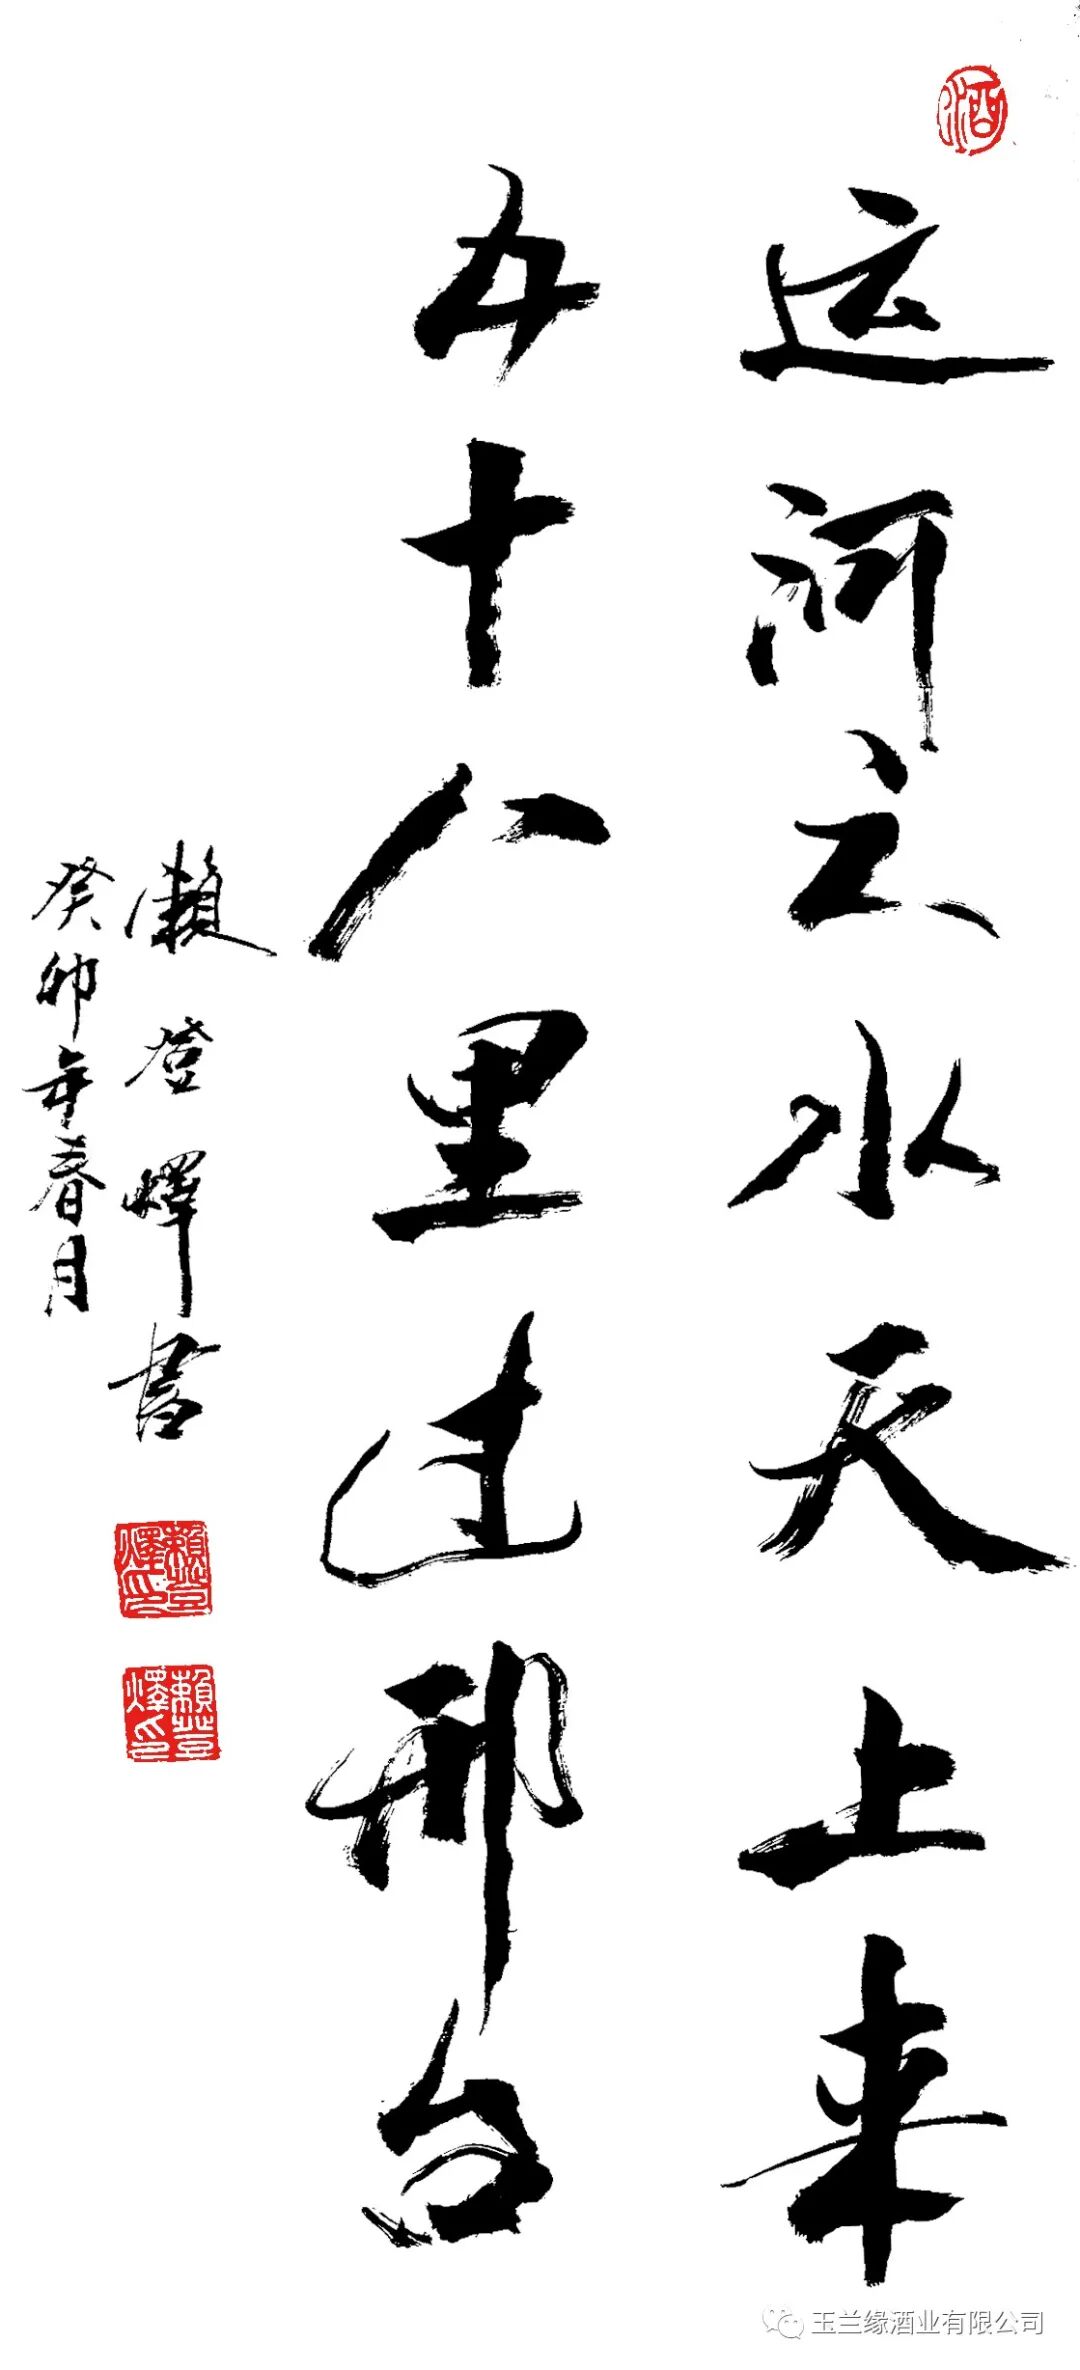 酒
运河之水天上来
五十八里邢台
賴登燡书
癸卯年春月
賴登燡印
賴登燡印
玉兰缘酒业有限公司